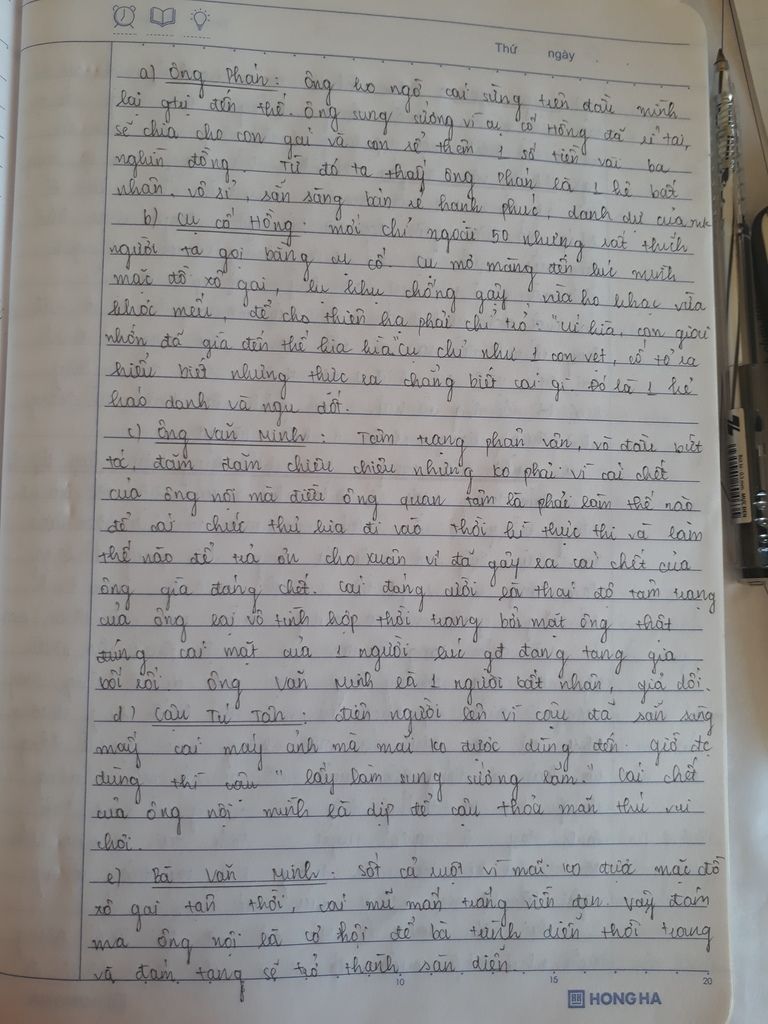 Thứ ngày
a) Ông Phán: Ông ko ngờ cái sừng trên đầu mình
lại gtrị đến thế. Ông sung sướng vì cụ cố Hồng đã rỉ tai,
sẽ chia cho con gái và con rể thêm 1 số tiền vài ba
nghìn đồng. Từ đó ta thấy ông Phán là 1 kẻ bất
nhân, vô sỉ, sẵn sàng bán rẻ hạnh phúc, danh dự của mk
b) Cụ cố Hồng: mới chỉ ngoài 50 nhưng rất thích
người ta gọi bằng cụ cố. Cụ mơ màng đến lúc mình
mặc đồ xô gai, lụ khụ chống gậy, vừa ho khạc vừa
khóc mếu, để cho thiên hạ phải chỉ trỏ: "Úi kìa, con giai
nhớn đã già đến thế kia kìa" Cụ chỉ như 1 con vẹt, cố tỏ ra
hiểu biết nhưng thực ra chẳng biết cái gì. Đó là 1 kẻ
háo danh và ngu dốt.
c) Ông Văn Minh: Tâm trạng phân vân, vò đầu bứt
tóc, đăm đăm chiêu chiêu nhưng ko phải vì cái chết
của ông nội mà điều ông quan tâm là phải làm thế nào
để cái chúc thư kia đi vào thời kì thực thi và làm
thế nào để trả ơn cho Xuân vì đã gây ra cái chết của
ông già đáng chết. Cái đáng cười là thái độ tâm trạng
của ông lại vô tình hợp thời trang bởi mặt ông thật
đúng cái mặt của 1 người lúc gđ đang tang gia
bối rối. Ông Văn Minh là 1 người bất nhân, giả dối.
d) Cậu Tú Tân: điên người lên vì cậu đã sẵn sàng
mấy cái máy ảnh mà mãi ko được dùng đến. giờ đc
dùng thì cậu "lấy làm sung sướng lắm." Cái chết
của ông nội mình là dịp để cậu thỏa mãn thú vui
chơi.
e) Bà Văn Minh: sốt cả ruột vì mãi ko được mặc đồ
xô gai tân thời, cái mũ mấn trắng viền đen. Vậy đám
ma ông nội là cơ hội để bà trình diễn thời trang
và đám tang sẽ trở thành sàn diễn.
10 15 20
HONG HA